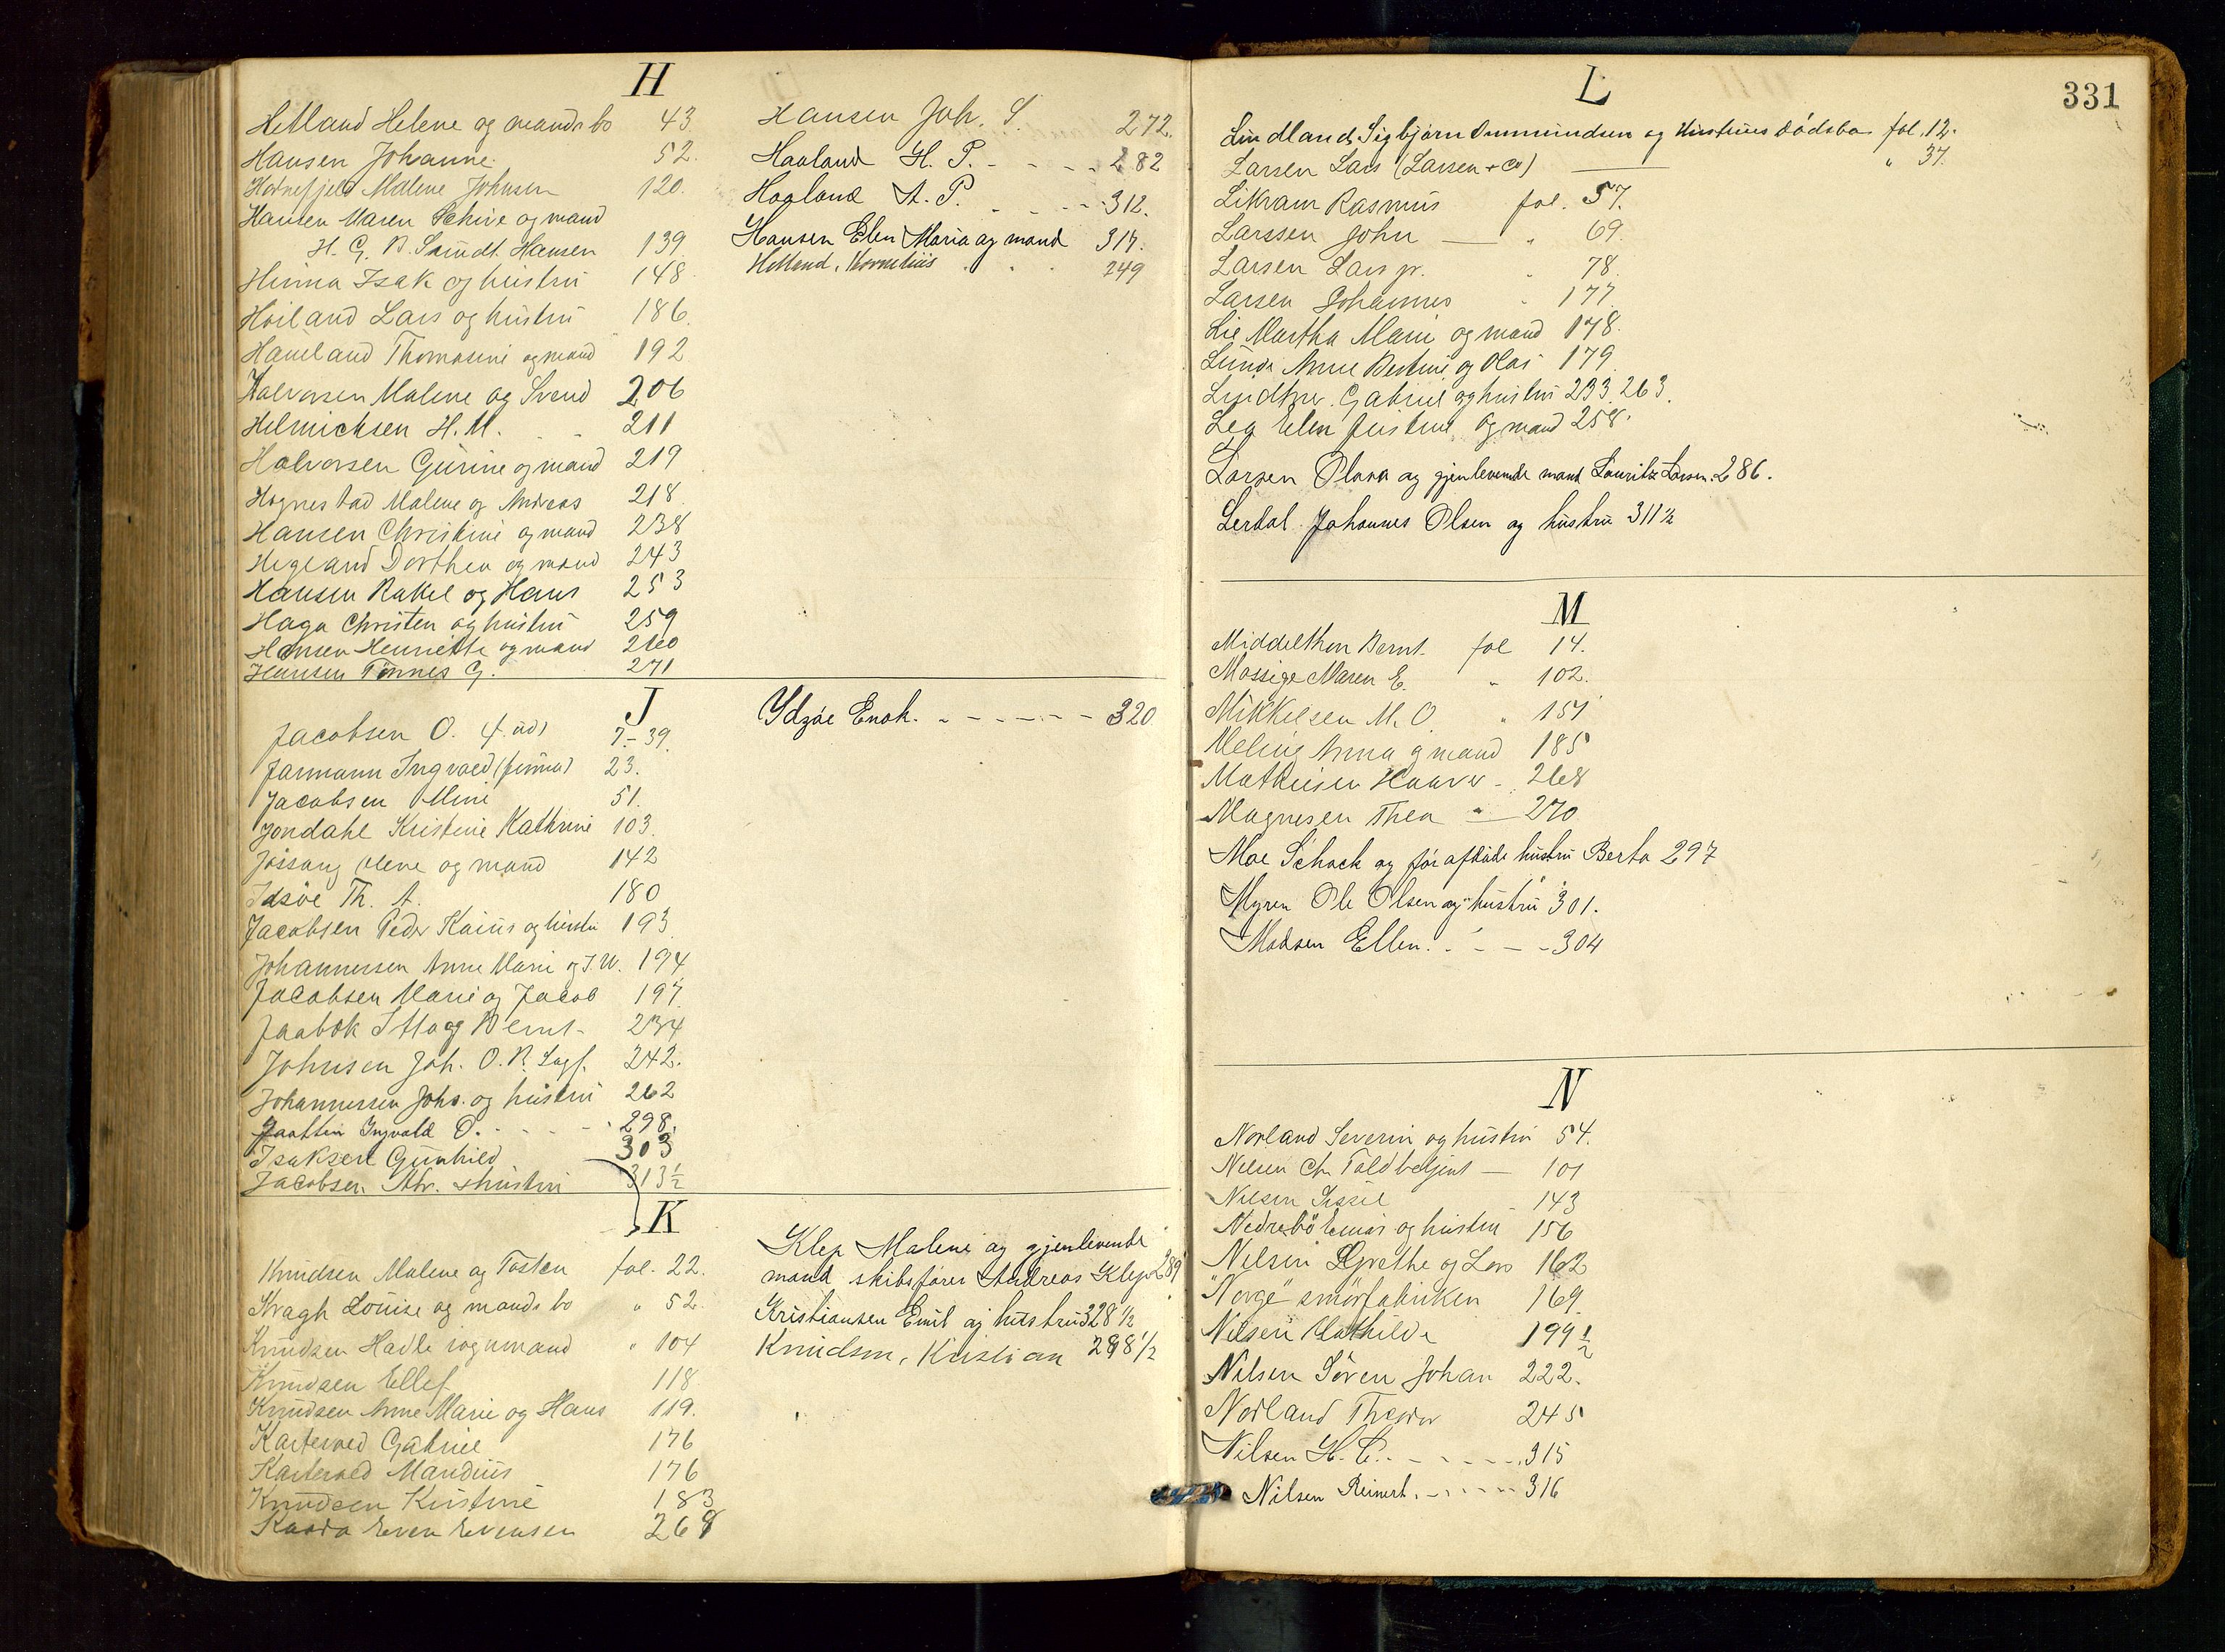 H
Hetland Helene og mands bo 43.
Hansen Johanne 52.
Hornefjeld Malene Johnsen 120.
Hansen Maren Schive og mand
H. G. B. Sundt Hansen 139
Hinna Isak og hustru 148
Høiland Lars og hustru 186.
Haueland Thomasine og mand 192
Halvorsen Malene og Svend 206
Helmichsen H. M. 211
Halvorsen Gurine og mand 219
Hognestad Malene og Andreas 218
Hansen Christine og mand 238
Hegeland Dorthea og mand 243
Hansen Rakkel og Hans 253
Haga Christen og hustru 259
Hansen Henriette og mand 260
Hansen Tønnes G. 271
Hansen Joh. S. 272.
Haaland H. P. - - - - 282
Haaland A. P. - - - 312.
Hansen Elen Maria og mand 317.
Hetland, Kornelius 249
J
Jacobsen O. 7.-39.
Jarmann Ingvald (firma) 23.
Jacobsen Oline 51.
Jondahl Kristine Kathrine 103.
Jøssang Olene og mand 142
Idsøe Th. A. 180
Jacobsen Peder Kaius og hustru 193
Johannessen Anne Marie og J. W. 194
Jacobsen Marie og Jacob 197
Jaabæk Bernt 234
Johnsen Joh. O. R. Sagf. 242.
Johannessen Johs. og hustru 262
Jaatten Ingvald O. - - - 298.
Isaksen Gunhild 303
Jacobsen Abr. & hustru 313½
Ydsøe Enok. - - - - - - 320
K
Knudsen Malene og Tosten fol. 22.
Kragh Louise og mands bo " 52.
Knudsen Hadle og mand " 104
Knudsen Ellef 118
Knudsen Anne Marie og Hans 119.
Kartevold Gabriel 176
Kartevold Maudius 176
Knudsen Kristine 183
Kaada Even Evensen 268
Klep Malene og gjenlevende
mand skibsfører Andreas Klep 289
Kristiansen Emil og hustru 328½
Knudsen, Kristian 298½
331
L
Lindland Sigbjørn Ommundsen og Hustrues dødsbo fol. 12.
Larsen Lars (Larsen & Co) — " 37.
Likvam Rasmus fol. 57.
Larssen John — " 69.
Larsen Lars jr. " 78.
Larsen Johannes " 177
Lie Martha Marie og mand 178.
Lunde Anne Bertine og Olai 179
Lindtner Gabriel og hustru 233. 263.
Lea Elen Justine og mand 258.
Larsen Olava og gjenlevende mand Lauritz Larsen. 286.
Lerdal Johannes Olsen og hustru 311½
M
Middelthon Bernt fol 14.
Mossige Maren E. " 102.
Mikkelsen M. O. " 151
Meling Anna og mand 185
Mathiesen Haaver - 268
Magnesen Thea " — 270
Moe Schack og før afdøde hustru Berta 297
Myren Ole Olsen og hustru 301.
Madsen Ellen. - - - 304
N
Norland Severin og hustru 54.
Nilsen Chr Toldbetjent — 101
Nilsen Sissel 143
Nedrebø Tomas og hustru 156
Nilsen Grethe og Lars 162
"Norge" smørfabriken 169
Nilsen Mathilde 199½
Nilsen Søren Johan 222.
Norland Theodor 245
Nilsen H. C. - - - - - 315
Nilsen Reinert. - - - - - 316